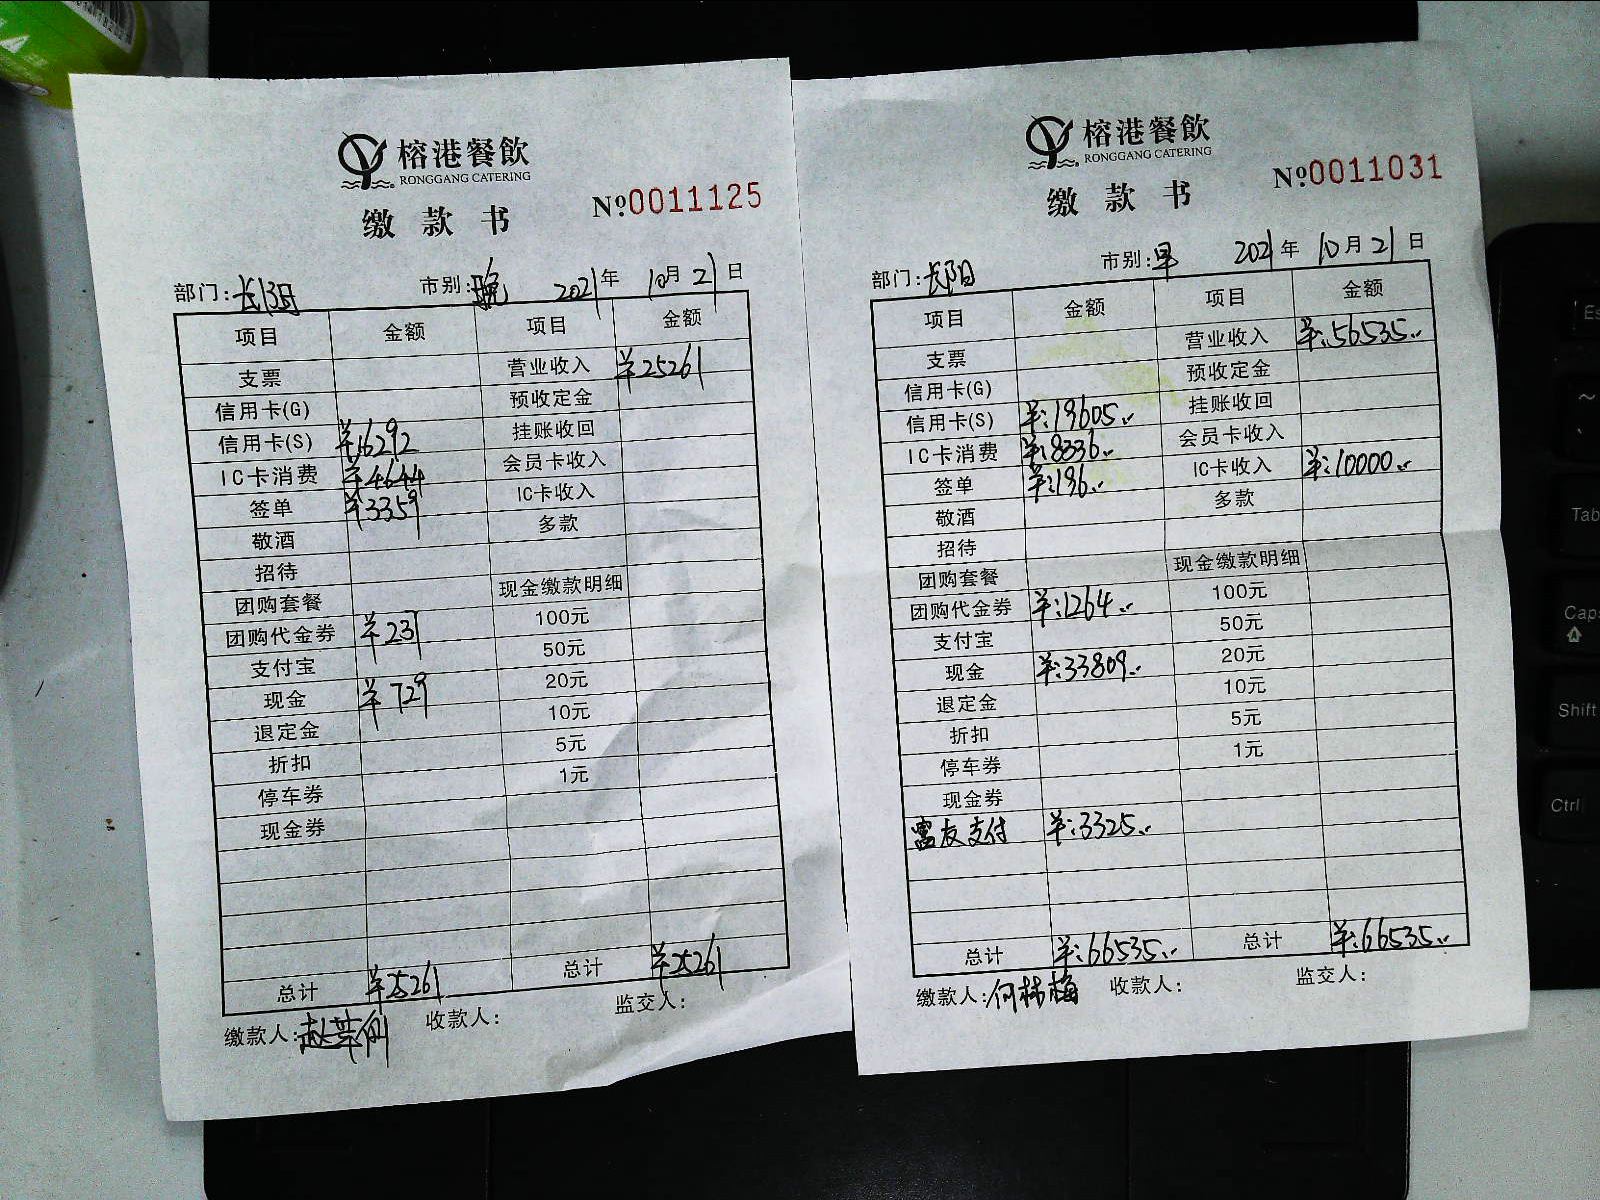 榕港餐飲
RONGGANG CATERING
缴款书
№0011125
部门:长阳 市别:晚 2021年10月21日
项目 金额 项目 金额
支票 营业收入 ¥25261
信用卡(G) 预收定金
信用卡(S) ¥16292 挂账收回
IC卡消费 ¥4644 会员卡收入
签单 ¥3359 IC卡收入
敬酒 多款
招待
团购套餐 现金缴款明细
团购代金券 ¥237 100元
支付宝 50元
现金 ¥729 20元
退定金 10元
折扣 5元
停车券 1元
现金券
总计 ¥25261 总计 ¥25261
缴款人: 收款人: 监交人:
榕港餐飲
RONGGANG CATERING
缴款书
№0011031
部门:长阳 市别:早 2021年10月21日
项目 金额 项目 金额
支票 营业收入 ¥:56535..
信用卡(G) 预收定金
信用卡(S) ¥:19605.. 挂账收回
IC卡消费 ¥:8336.. 会员卡收入
签单 ¥:196.. IC卡收入 ¥:10000..
敬酒 多款
招待
团购套餐 现金缴款明细
团购代金券 ¥:1264.. 100元
支付宝 50元
现金 ¥:33809.. 20元
退定金 10元
折扣 5元
停车券 1元
现金券
富友支付 ¥:3325..
总计 ¥:66535.. 总计 ¥:66535..
缴款人:何林梅 收款人: 监交人:
Tab
Caps
Shift
Ctrl